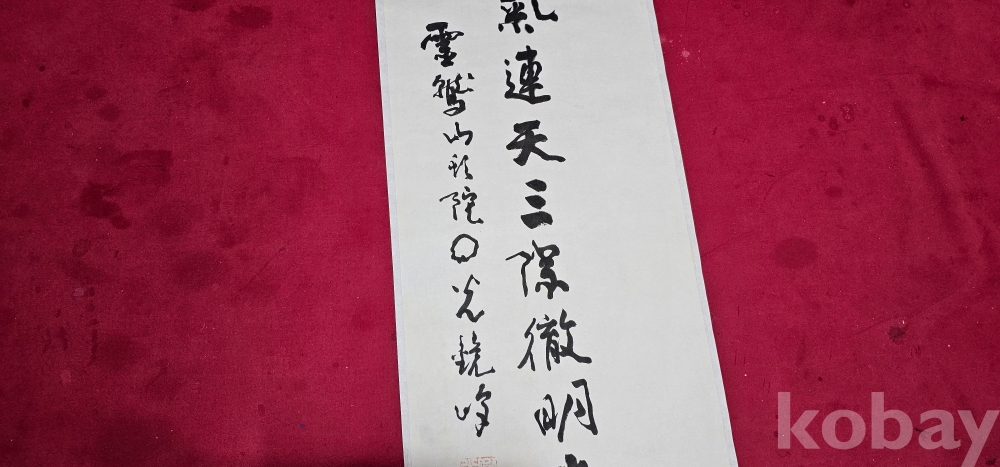 氣連天三際徹明
靈鷲山頭陀
光鏡峰
kobay